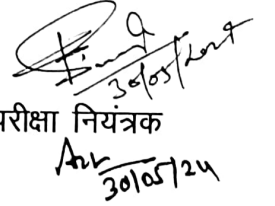 30/05/2024
परीक्षा नियंत्रक
30/05/24